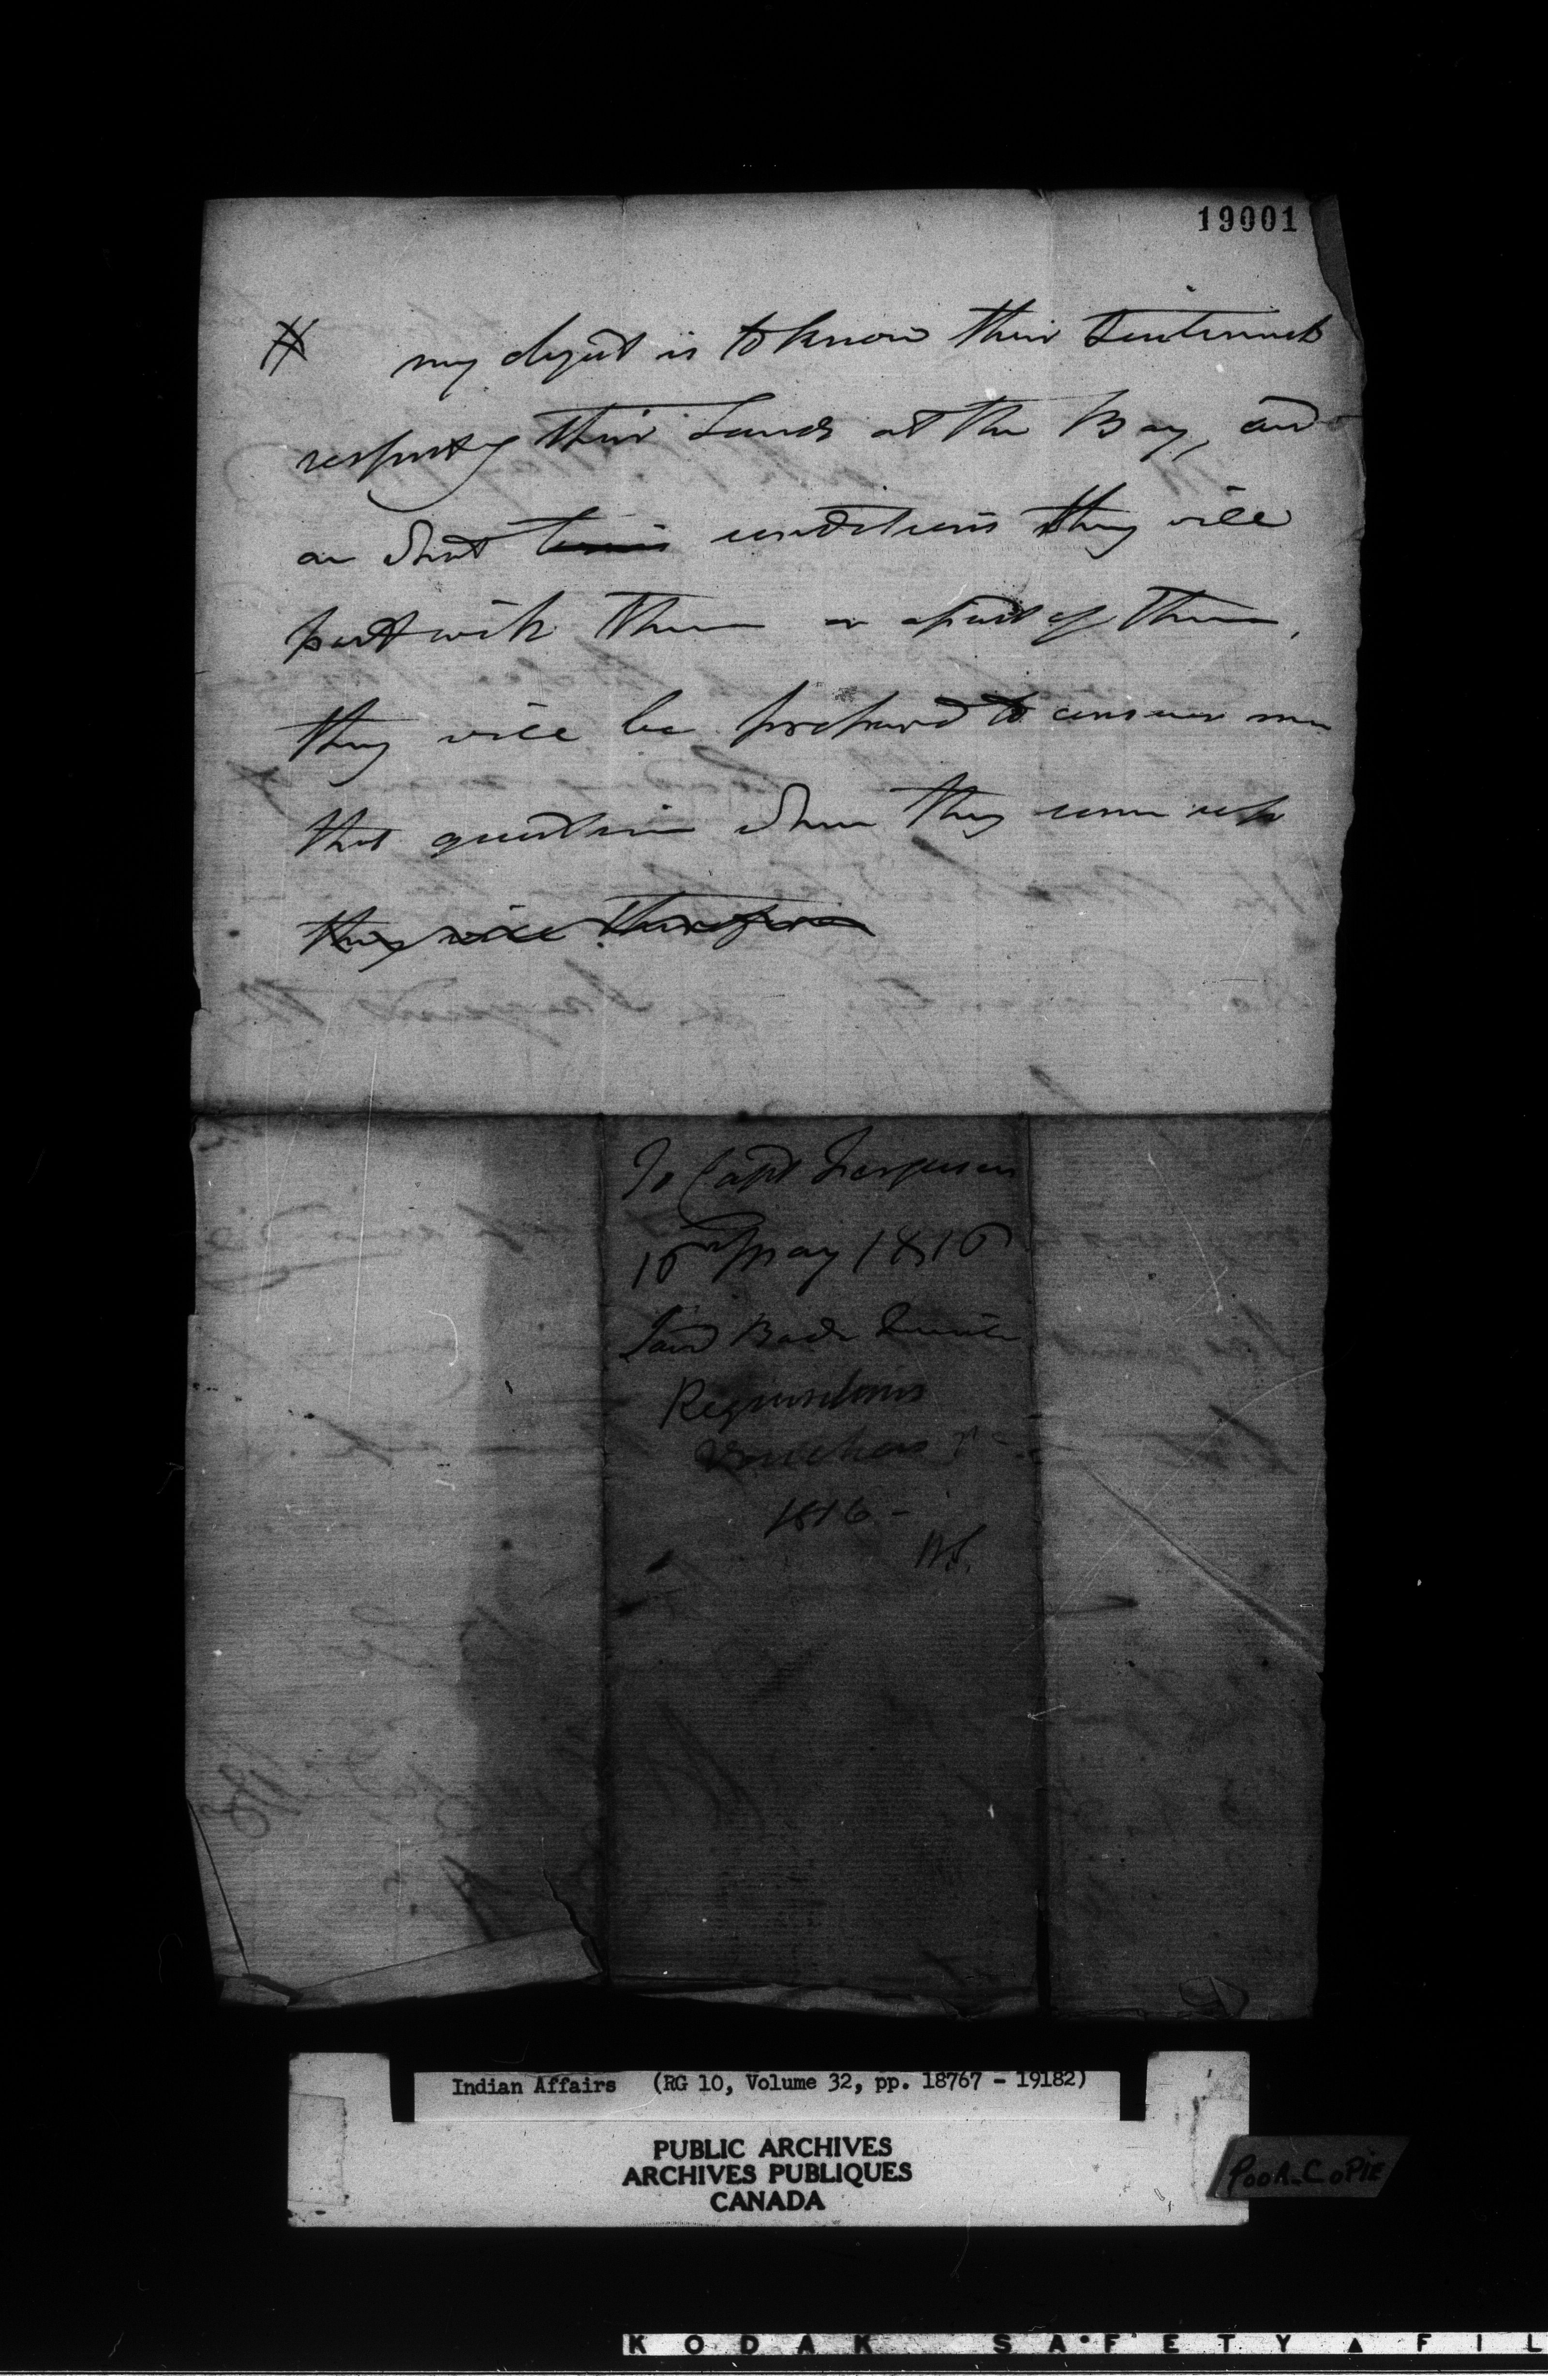 19001
# my object is to know their Sentiments
respectg their Lands at the Bay, and
on what terms conditions they will
part with them or a part of them,
they will be prepared to answer me
that question when they come up
they will therefore
To Capt Ferguson
16th May 1816
Requisitions
Vouchers
1816 -
Indian Affairs (RG 10, Volume 32, pp. 18767 - 19182)
PUBLIC ARCHIVES
ARCHIVES PUBLIQUES
CANADA
POOR COPIE
KODAK SAFETY FIL